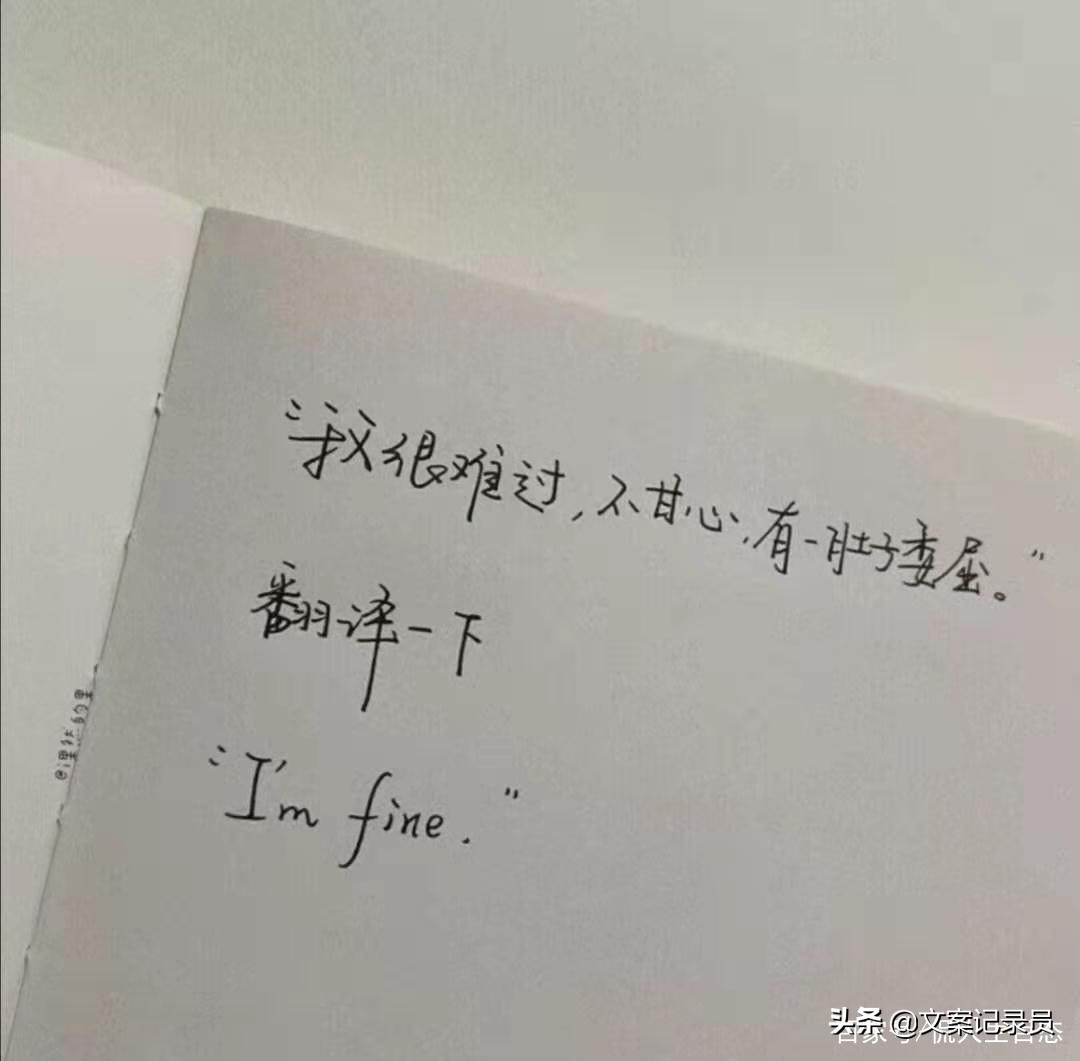 “我很难过，不甘心，有一肚子委屈。”
翻译一下
“I'm fine.”
头条 @文案记录员